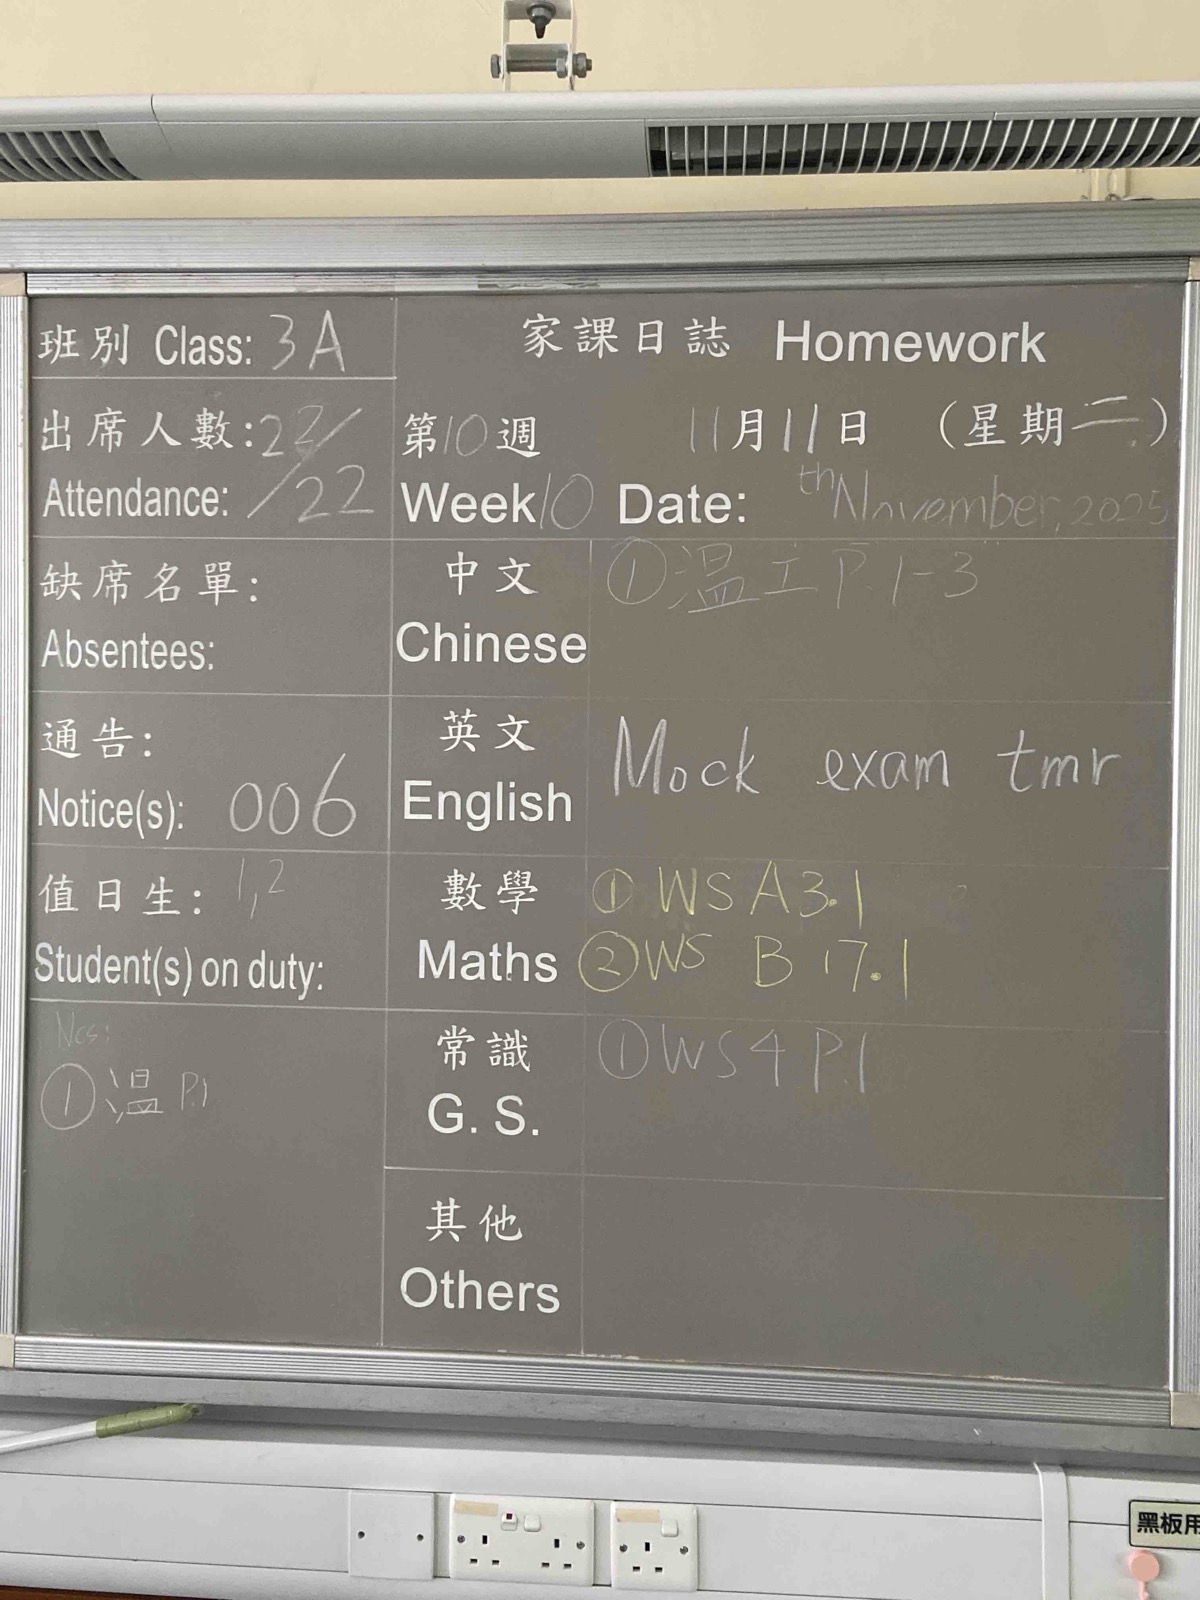 班別 Class: 3A
家課日誌 Homework
出席人數:22/
Attendance: /22
第10週 11月11日 (星期二)
Week10 Date: th November, 2025
缺席名單:
Absentees:
通告:
Notice(s): 006
值日生: 1,2
Student(s) on duty:
Ncs:
① 温 P.1
中文 ①温工 P.1-3
Chinese
英文
English Mock exam tmr
數學 ① WS A3.1
Maths ② WS B 17.1
常識 ① WS4 P.1
G. S.
其他
Others
黑板用